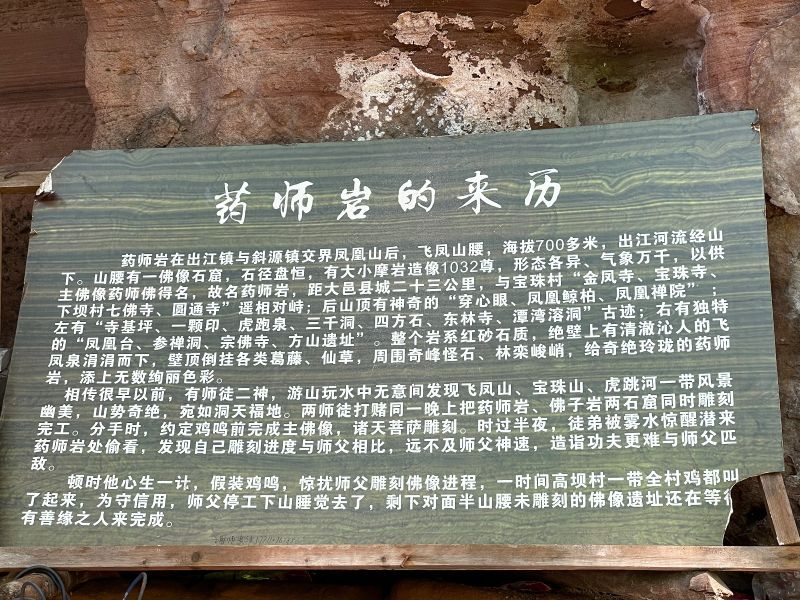 药师岩的来历
药师岩在出江镇与斜源镇交界凤凰山后，飞凤山腰，海拔700多米，出江河流经山
下。山腰有一佛像石窟，石径盘恒，有大小摩岩造像1032尊，形态各异、气象万千，以供
主佛像药师佛得名，故名药师岩，距大邑县城二十三公里，与宝珠村“金凤寺、宝珠寺、
下坝村七佛寺、圆通寺”遥相对峙；后山顶有神奇的“穿心眼、凤凰鲸柏、凤凰禅院”；
左有“寺基坪、一颗印、虎跑泉、三千洞、四方石、东林寺、潭湾溶洞”古迹；右有独特
的“凤凰台、参禅洞、宗佛寺、方山遗址”。整个岩系红砂石质，绝壁上有清澈沁人的飞
凤泉涓涓而下，壁顶倒挂各类葛藤、仙草，周围奇峰怪石、林栾峻峭，给奇绝玲珑的药师
岩，添上无数绚丽色彩。
相传很早以前，有师徒二神，游山玩水中无意间发现飞凤山、宝珠山、虎跳河一带风景
幽美，山势奇绝，宛如洞天福地。两师徒打赌同一晚上把药师岩、佛子岩两石窟同时雕刻
完工。分手时，约定鸡鸣前完成主佛像，诸天菩萨雕刻。时过半夜，徒弟被雾水惊醒潜来
药师岩处偷看，发现自己雕刻进度与师父相比，远不及师父神速，造诣功夫更难与师父匹
敌。
顿时他心生一计，假装鸡鸣，惊扰师父雕刻佛像进程，一时间高坝村一带全村鸡都叫
了起来，为守信用，师父停工下山睡觉去了，剩下对面半山腰未雕刻的佛像遗址还在等待
有善缘之人来完成。